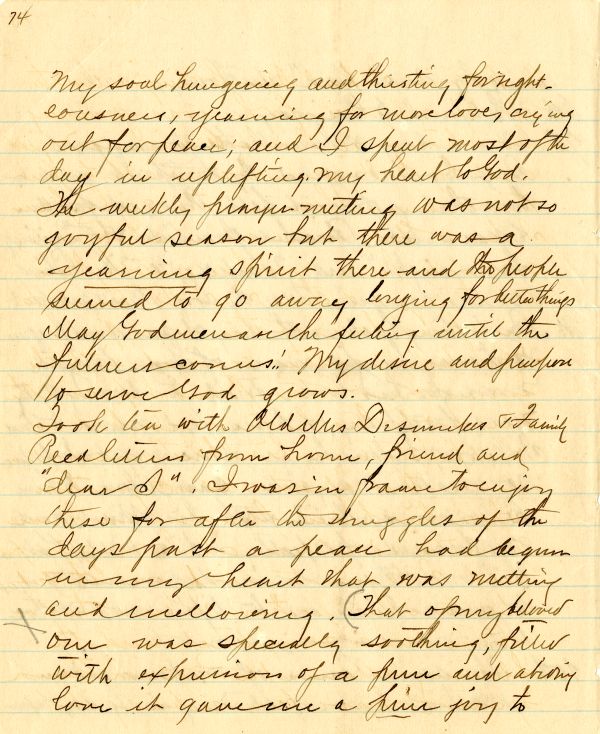 74
My soul hungering and thirsting for right-
eousness, yearning for more love, crying
out for peace; and I spent most of the
day in uplifting my heart to God.
The weekly prayer-meeting was not so
joyful season but there was a
yearning spirit there and the people
seemed to go away longing for better things
May God increase the feeling until the
fulness comes! My desire and purpose
to serve God grows.
Took tea with Old Mrs Dismukes & Family
Recd letters from home, friend and
"dear S". I was in frame to enjoy
these for after the struggles of the
days past a peace had begun
in my heart that was melting
and mellowing. (That of my beloved
one was specially soothing, filled
with expressions of a pure and abiding
love it gave me a pure joy to